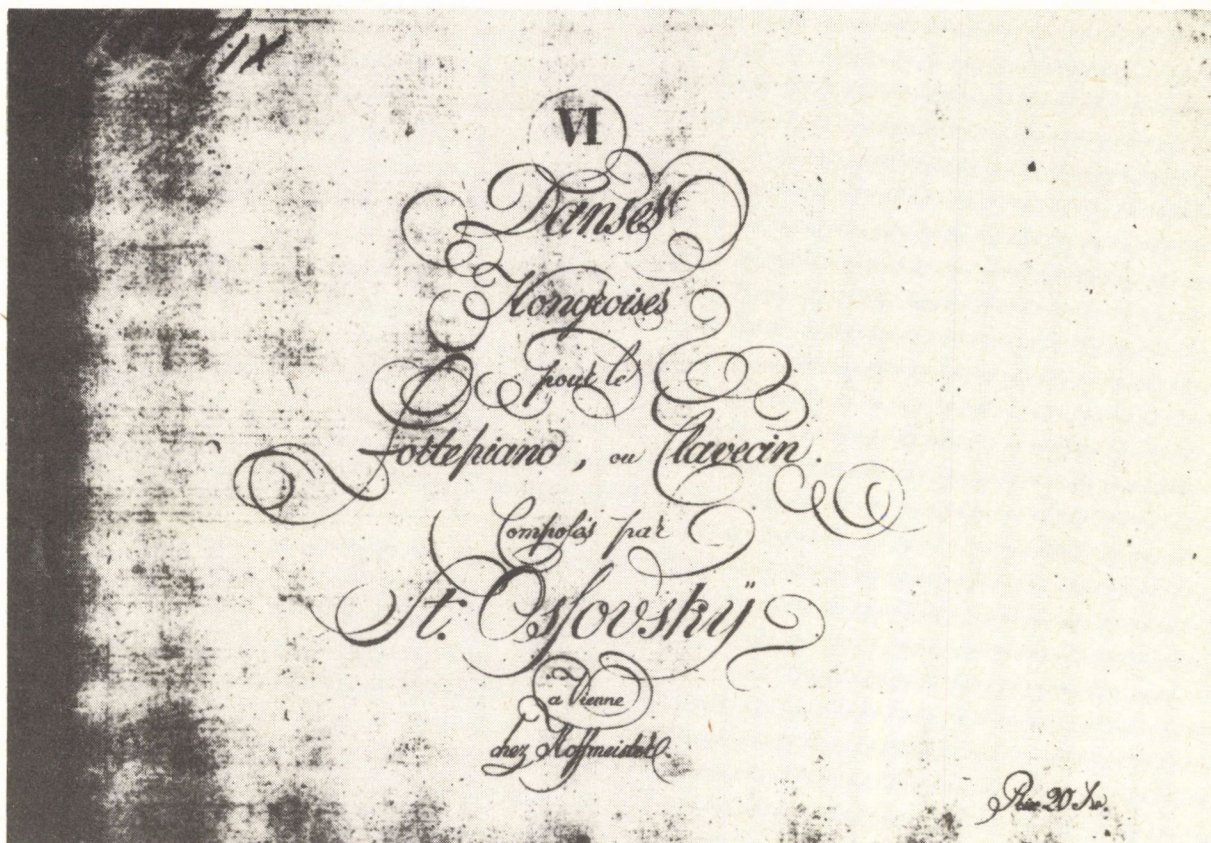 VI
Danses
Hongroises
pour le
Fortepiano, ou Clavecin.
Composés par
St. Osſovskÿ
à Vienne
chez Hoffmeister.
Prix 20 Xr.